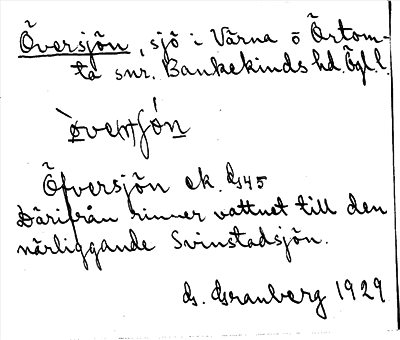 Översjön, sjö i Vårna o Örtom-
ta snr. Bankekinds hd. Ögl. l.
Öfversjön ek. ds 45
Därifrån rinner vattnet till den
närliggande Svinstadsjön.
G. Granberg 1929